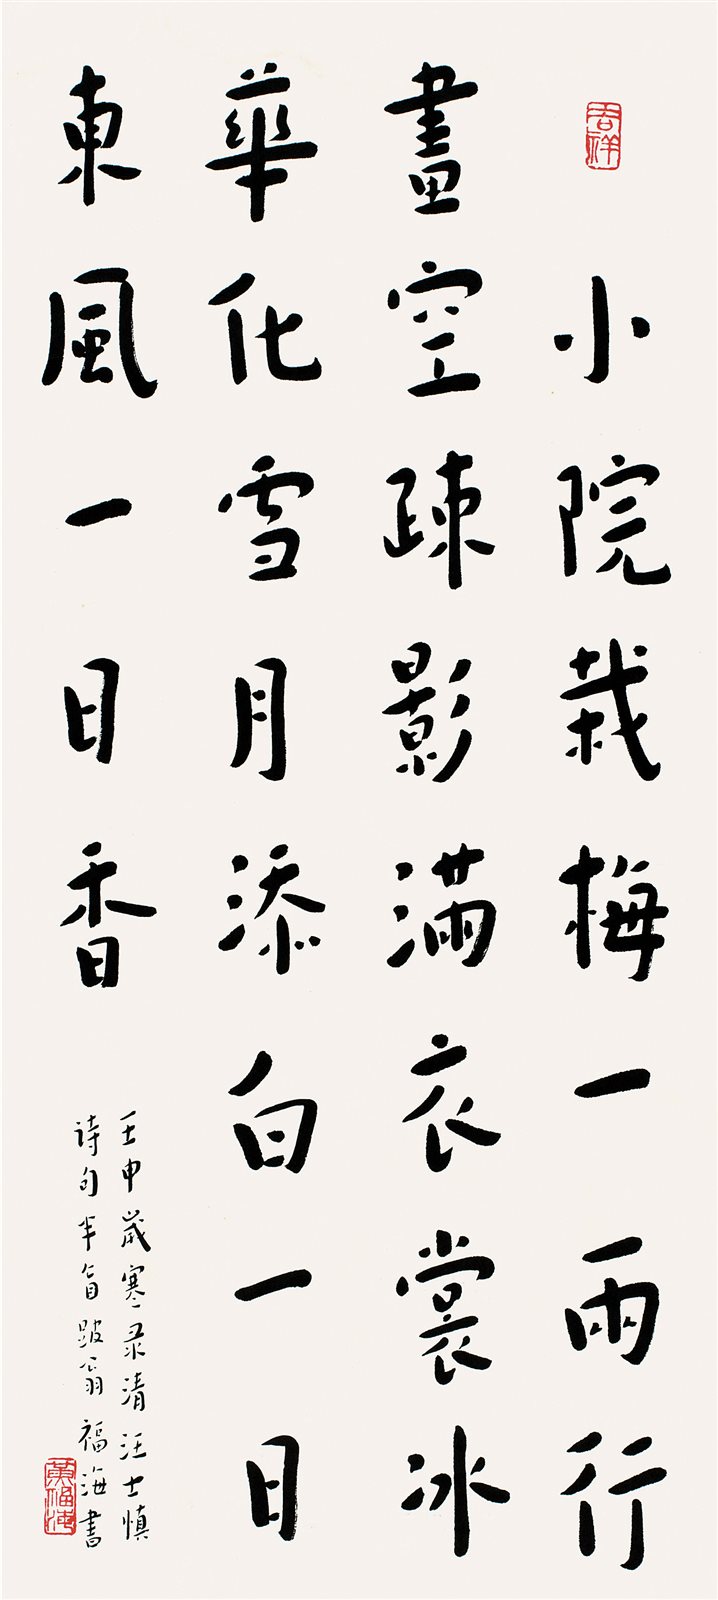 吉祥
小院栽梅一兩行
畫空疎影滿衣裳冰
華化雪月添白一日
東風一日香
壬申歲寒录清汪士慎
诗句半盲跛翁福海書
黄福海